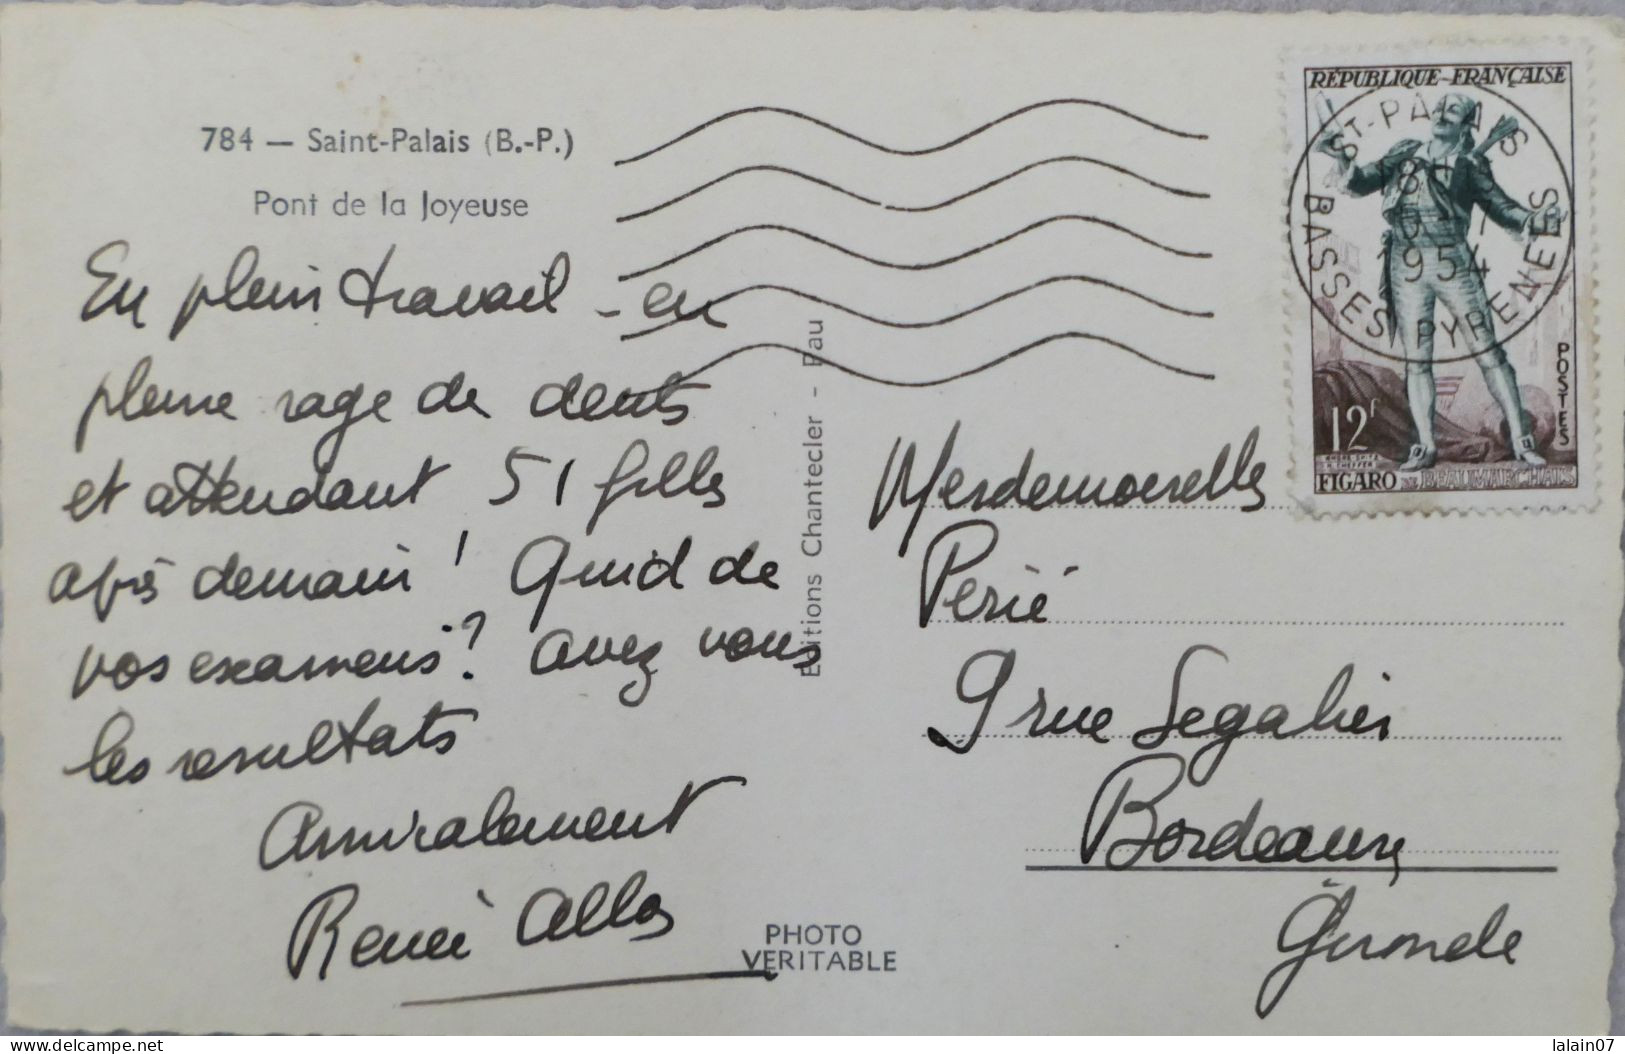 784 — Saint-Palais (B.-P.)
Pont de la Joyeuse
En plein travail - en
pleine rage de dents
et attendant 51 filles
après demain ! Quid de
vos examens ? avez vous
les résultats
Amicalement
Renée Allos
Editions Chantecler - Pau
PHOTO
VERITABLE
RÉPUBLIQUE-FRANÇAISE
ST-PALAIS
18H
1954
BASSES PYRENEES
POSTES
12F
FIGARO DE BEAUMARCHAIS
Mesdemoiselles
Périé
9 rue Ségalier
Bordeaux
Gironde
delcampe.net
lalain07